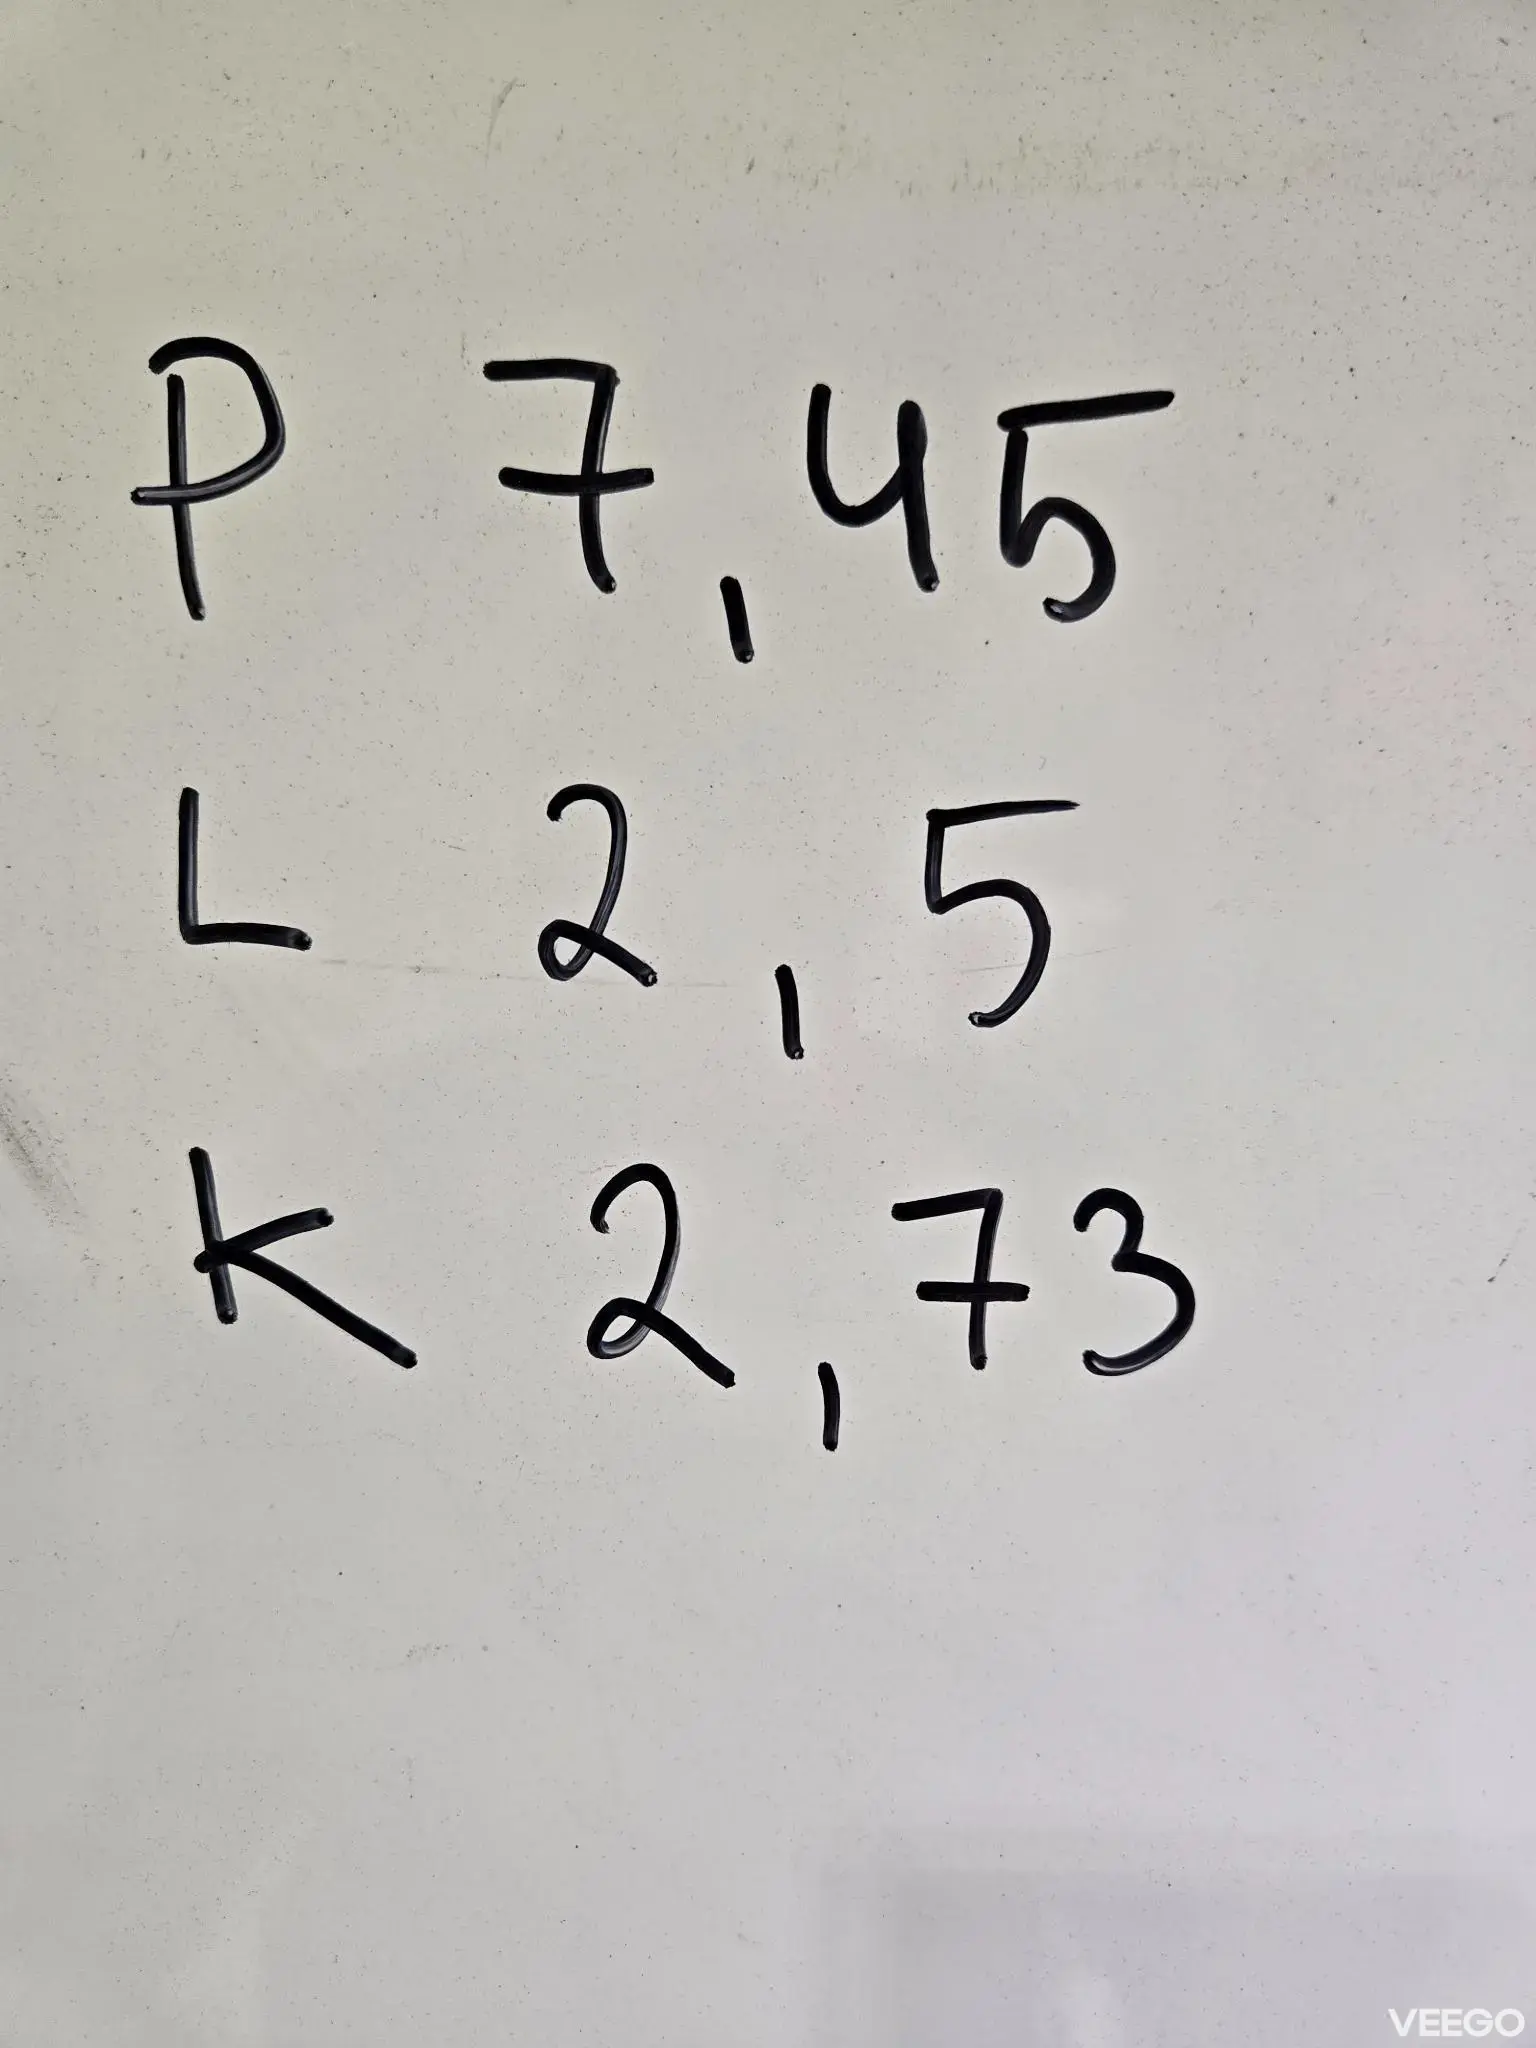 P 7,45
L 2,5
K 2,73
VEEGO